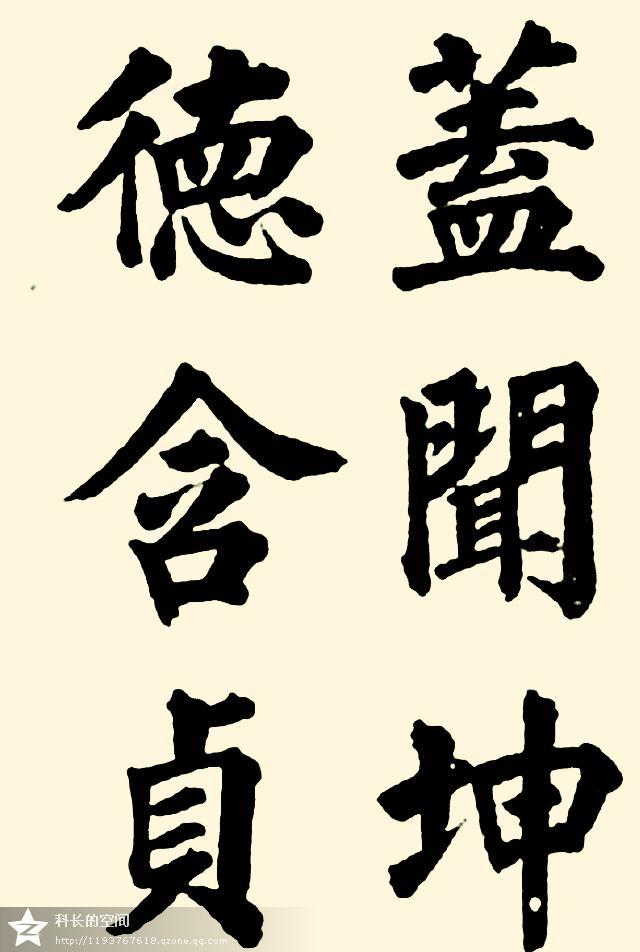 蓋聞坤
德含貞
科长的空间
http://1193767618.qzone.qq.com